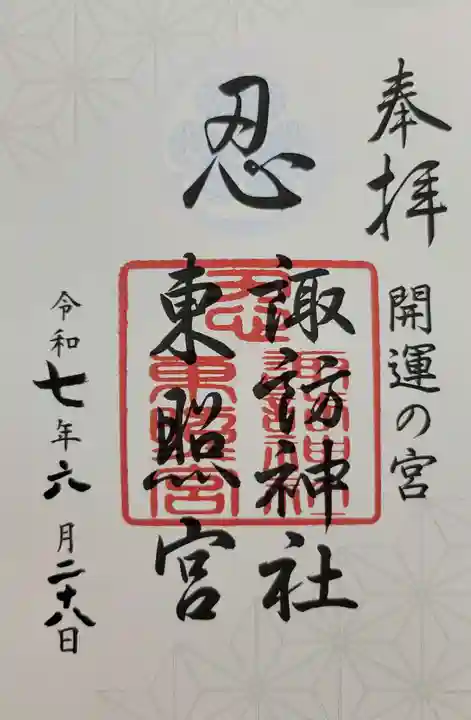 奉拝
開運の宮
忍
諏訪神社
東照宮
令和七年六月二十八日
忍
諏訪神社
東照宮